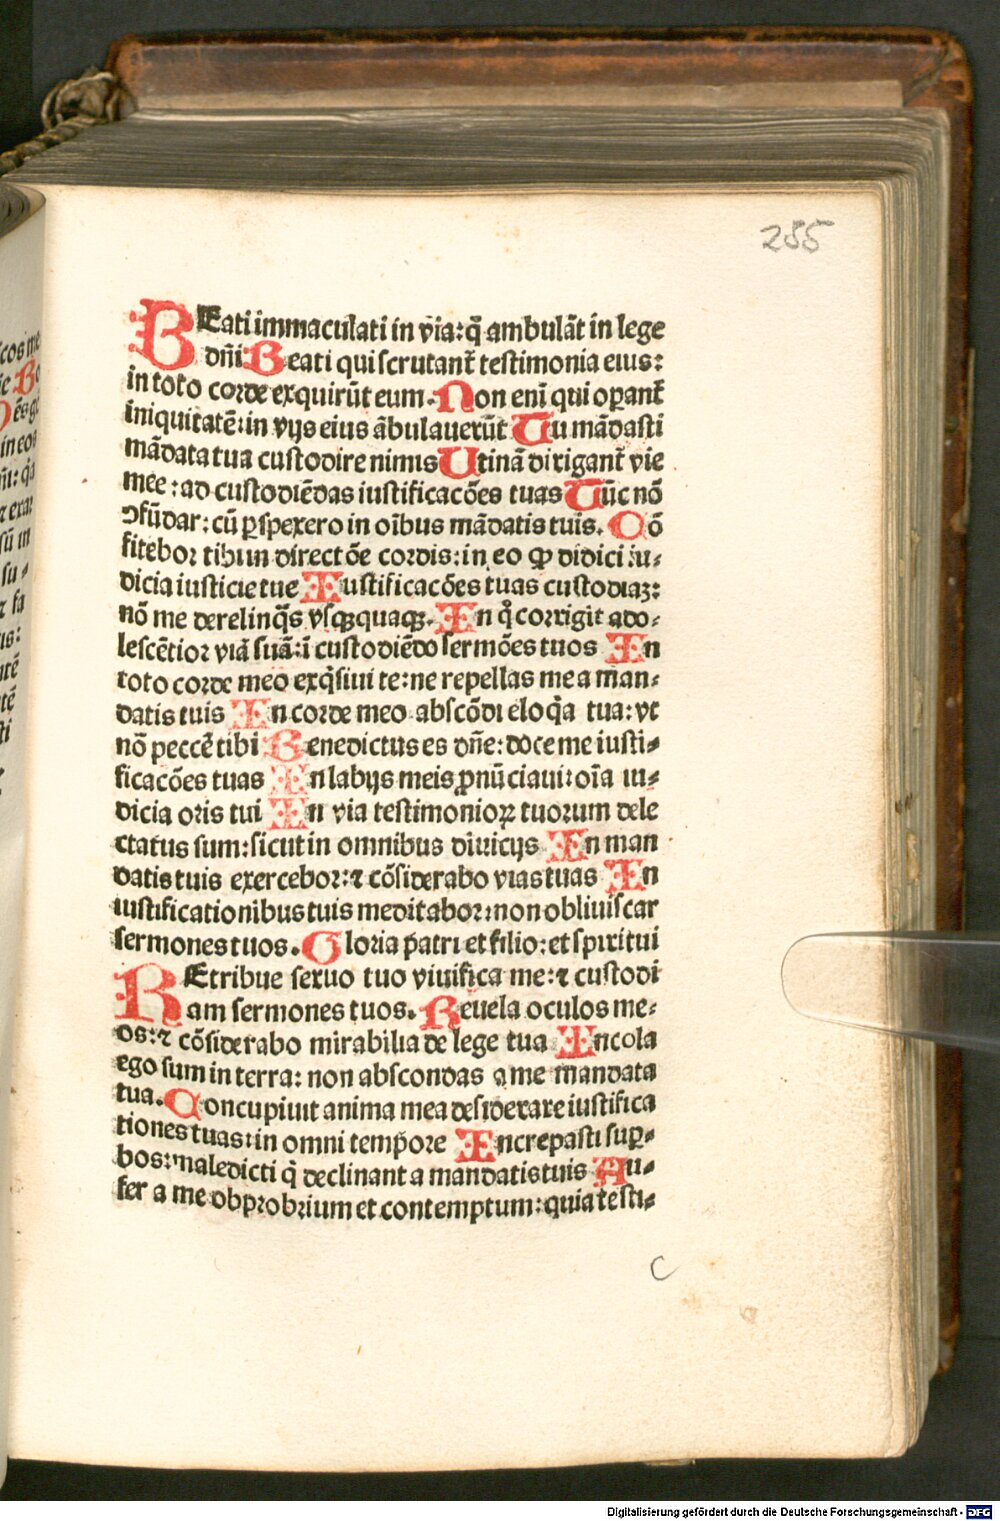 255
BEati immaculati in via: q̄ ambulāt in lege
dn̄i Beati qui scrutant᷑ testimonia eius:
in toto corde exquirūt eum. Non eni̅ qui oꝑant᷑
iniquitatē: in vijs eius ābulauerūt Tu mādasti
mādata tua custodire nimis Utinā dirigant᷑ vie
mee: ad custodiēdas iustificacōes tuas Tūc nō
ꝯfūdar: cū ꝑspexero in oībus mādatis tuis. Cō
fitebor tibi in directōe cordis: in eo ꝙ didici iu-
dicia iusticie tue Iustificacōes tuas custodiaꝫ:
nō me derelinq̄s vsqꝫquaqꝫ. In q̊ corrigit ado-
lescētior viā suā: ī custodiēdo sermōes tuos In
toto corde meo exq̄siui te: ne repellas me a man-
datis tuis In corde meo abscōdi eloq̄a tua: vt
nō peccē tibi Benedictus es dn̄e: doce me iusti-
ficacōes tuas In labijs meis ꝓnūciaui: oīa iu-
dicia oris tui In via testimonioꝝ tuorum dele
ctatus sum: sicut in omnibus diuicijs In man
datis tuis exercebor: ⁊ cōsiderabo vias tuas In
iustificationibus tuis meditabor: non obliuiscar
sermones tuos. Gloria patri et filio: et spiritui
REtribue seruo tuo viuifica me: ⁊ custodi
am sermones tuos. Reuela oculos me-
os: ⁊ cōsiderabo mirabilia de lege tua Incola
ego sum in terra: non abscondas a me mandata
tua. Concupiuit anima mea desiderare iustifica
tiones tuas: in omni tempore Increpasti suꝑ-
bos: maledicti q̄ declinant a mandatis tuis Au-
fer a me obprobrium et contemptum: quia testi-
c
Digitalisierung gefördert durch die Deutsche Forschungsgemeinschaft - DFG